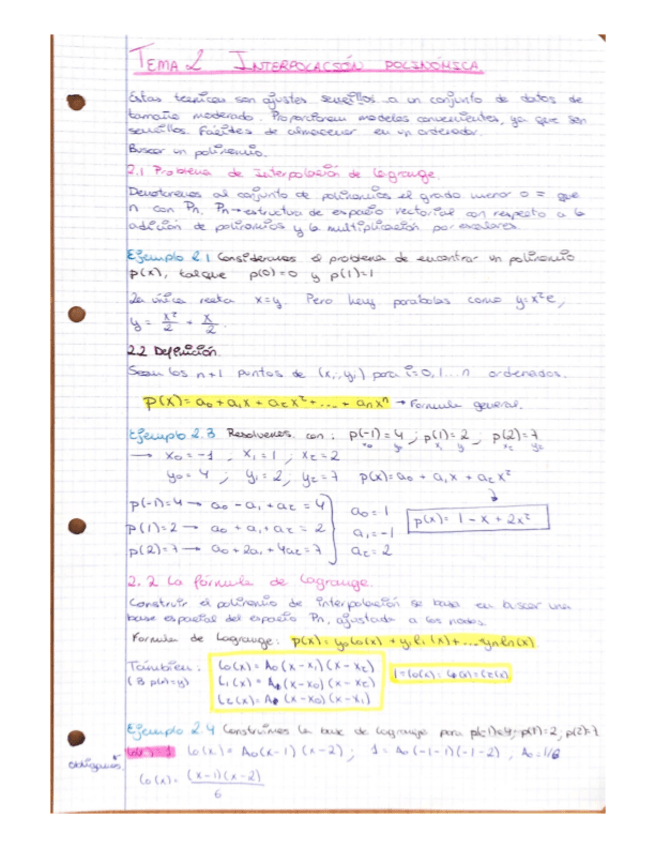 TEMA 2 INTERPOLACIÓN POLINÓMICA
Estas tecnicas son ajustes sencillos a un conjunto de datos de
tamaño moderado. Proporcionan modelos convenientes, ya que son
sencillos. Faciles de almacenar en un ordenador.
Buscar un polinomio.
2.1 Problema de Interpolación de Lagrange.
Denotaremos al conjunto de polinomios el grado menor o = que
n con Pn. Pn→estructura de espacio vectorial con respecto a la
adición de polinomios y la multiplicación por escalares.
Ejemplo 2.1 Consideramos el problema de encontrar un polinomio
p(x), tal que p(0)=0 y p(1)=1
La única recta x=y. Pero hay parábolas como y=x²,
y = x²/2 + x/2.
2.2 Definición.
Sean los n+1 puntos de (xi, yi) para i=0,1...n ordenados.
P(x)= a0 + a1x + a2x² + ... + anxⁿ → Formula general.
Ejemplo 2.3 Resolvemos con: p(-1)=4 ; p(1)=2 ; p(2)=7
x0 y0 x1 y x2 y2
→ x0=-1 ; x1=1 ; x2=2
y0=4 ; y1=2 ; y2=7 p(x)=a0 + a1x + a2x²
p(-1)=4 → a0 - a1 + a2 = 4
a0=1
p(1)=2 → a0 + a1 + a2 = 2
a1=-1
p(x)= 1 - x + 2x²
p(2)=7 → a0 + 2a1 + 4a2 = 7
a2=2
2.2 La fórmula de Lagrange.
Construir el polinomio de interpolación se basa en buscar una
base especial del espacio Pn, ajustada a los nodos.
Formula de Lagrange: p(x)= y0l0(x) + y1l1(x)+...+ynln(x)
También: l0(x) = A0(x-x1)(x-x2)
L1(x) = (x-x0)(x-x2)
L2(x) = (x-x0)(x-x1)
Ejemplo 2.4 Construimos la base de Lagrange para p(-1)=4; p(1)=2; p(2)=7
l0(x) = A0(x-1)(x-2) ; 1 = A0(-1-1)(-1-2) ; A0=1/6
l0(x) = (x-1)(x-2)
6